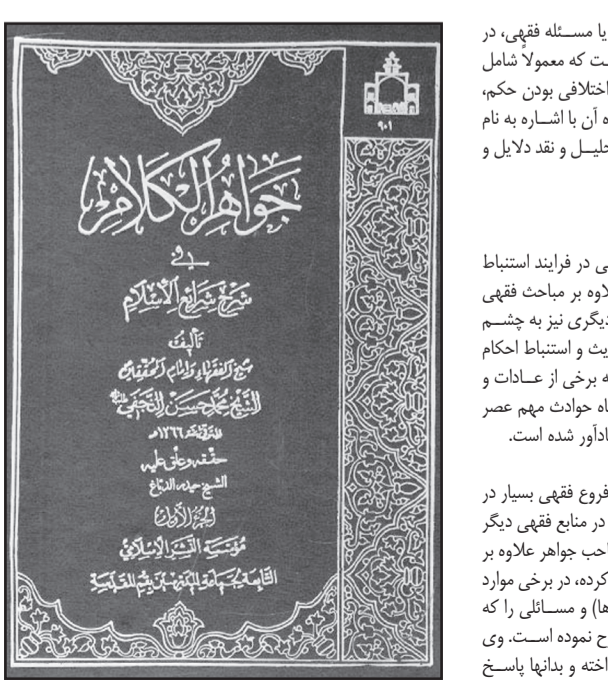 یا مسئله فقهی، در
ت که معمولاً شامل
اختلافی بودن حکم،
ه آن با اشاره به نام
حلیل و نقد دلایل و
ی در فرایند استنباط
لاوه بر مباحث فقهی
دیگری نیز به چشم
یث و استنباط احکام
ه برخی از عادات و
اه حوادث مهم عصر
ادآور شده است.
فروع فقهی بسیار در
در منابع فقهی دیگر
احب جواهر علاوه بر
کرده، در برخی موارد
ها) و مسائلی را که
ح نموده است. وی
اخته و بدانها پاسخ
٩٠١
جواهر الكلام
في
شرح شرائع الإسلام
تأليف
شيخ الفقهاء وإمام المحققين
الشيخ محمد حسن النجفي
المتوفى سنة ١٢٦٦هـ
حققه وعلق عليه
الشيخ حيدر الدباغ
الجزء الأول
مؤسسة النشر الإسلامي
التابعة لجماعة المدرسين بقم المقدسة